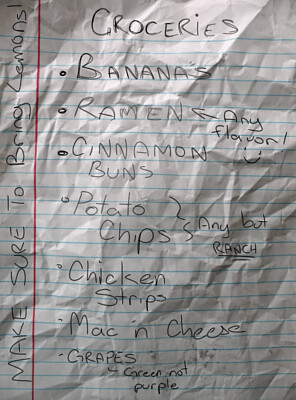 GROCERIES
• BANANAS
• RAMEN ← Any
flavor!
• CINNAMON
BUNS
• Potato
Chips } Any but
RANCH
• Chicken
Strips
• Mac 'n Cheese
• GRAPES
↳ Green not
purple
MAKE SURE TO Bring Lemons!